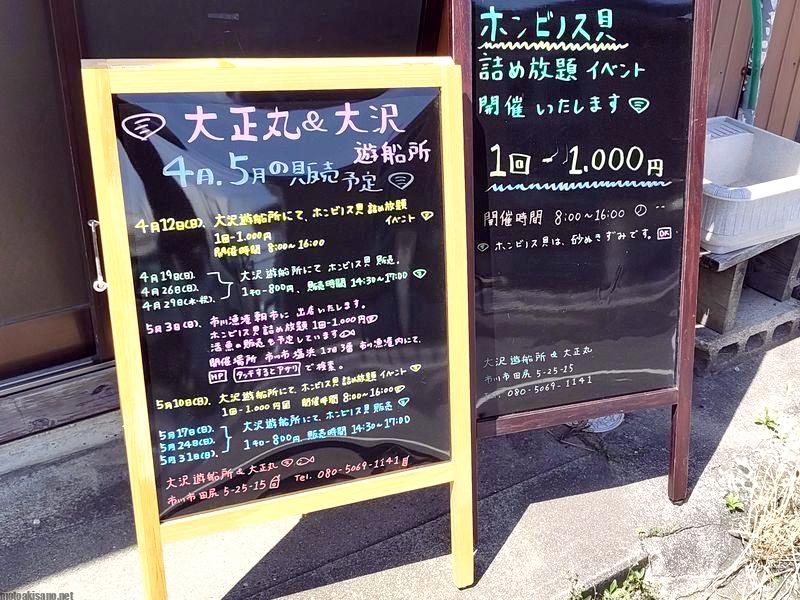 大正丸&大沢
遊船所
4月.5月の販売予定
4月12日(日)、大沢遊船所にて、ホンビノス貝 詰め放題
イベント
1回-1.000円
開催時間 8:00~16:00
4月19日(日)
4月26日(日)
4月29日(水・祝)
大沢遊船所にて ホンビノス貝 販売。
1キロ-800円、販売時間 14:30~17:00
5月3日(日)、市川漁港朝市に 出店いたします。
ホンビノス貝詰め放題 1回-1.000円
活魚の販売も予定しています
開催場所 市川市 塩浜 1丁目3番 市川漁港内にて、
HP タッチするとアサリ で検索。
5月10日(日)、大沢遊船所にて、ホンビノス貝 詰め放題 イベント
1回-1.000円 開催時間 8:00~16:00
5月17日(日)
5月24日(日)
5月31日(日)
大沢遊船所にて、ホンビノス貝 販売
1キロ-800円、販売時間 14:30~17:00
大沢遊船所&大正丸
市川市田尻 5-25-15 Tel. 080-5069-1141
ホンビノス貝
詰め放題 イベント
開催 いたします
1回-1.000円
開催時間 8:00~16:00
ホンビノス貝は、砂ぬきずみです。OK
大沢遊船所&大正丸
市川市田尻 5-25-15
080-5069-1141
motoakisano.net